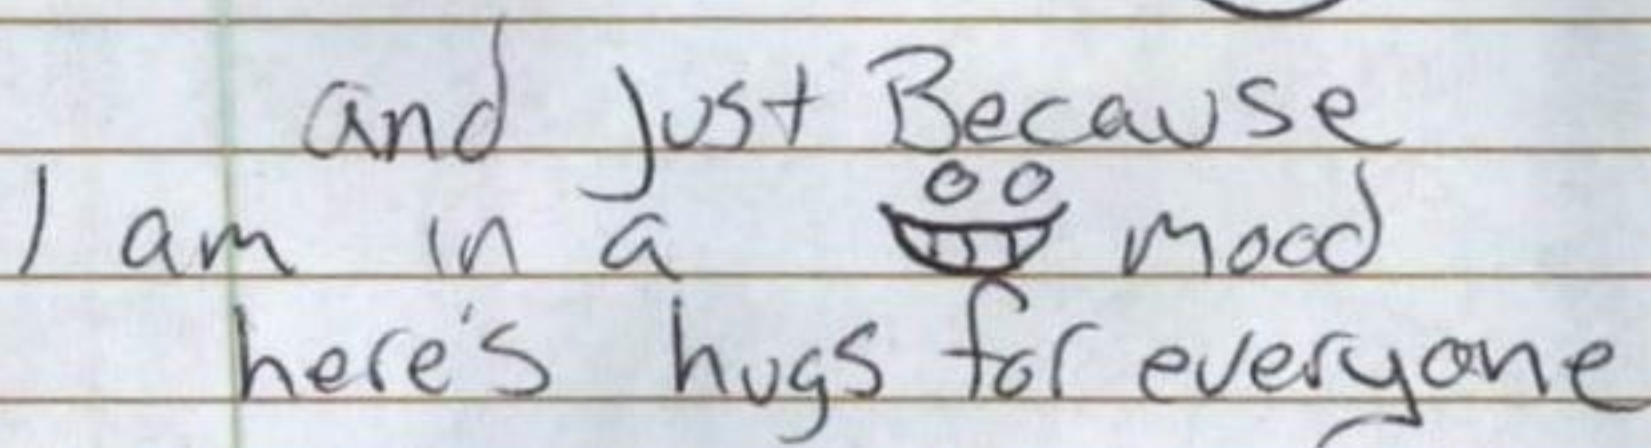 and just Because
I am in a mood
here's hugs for everyone